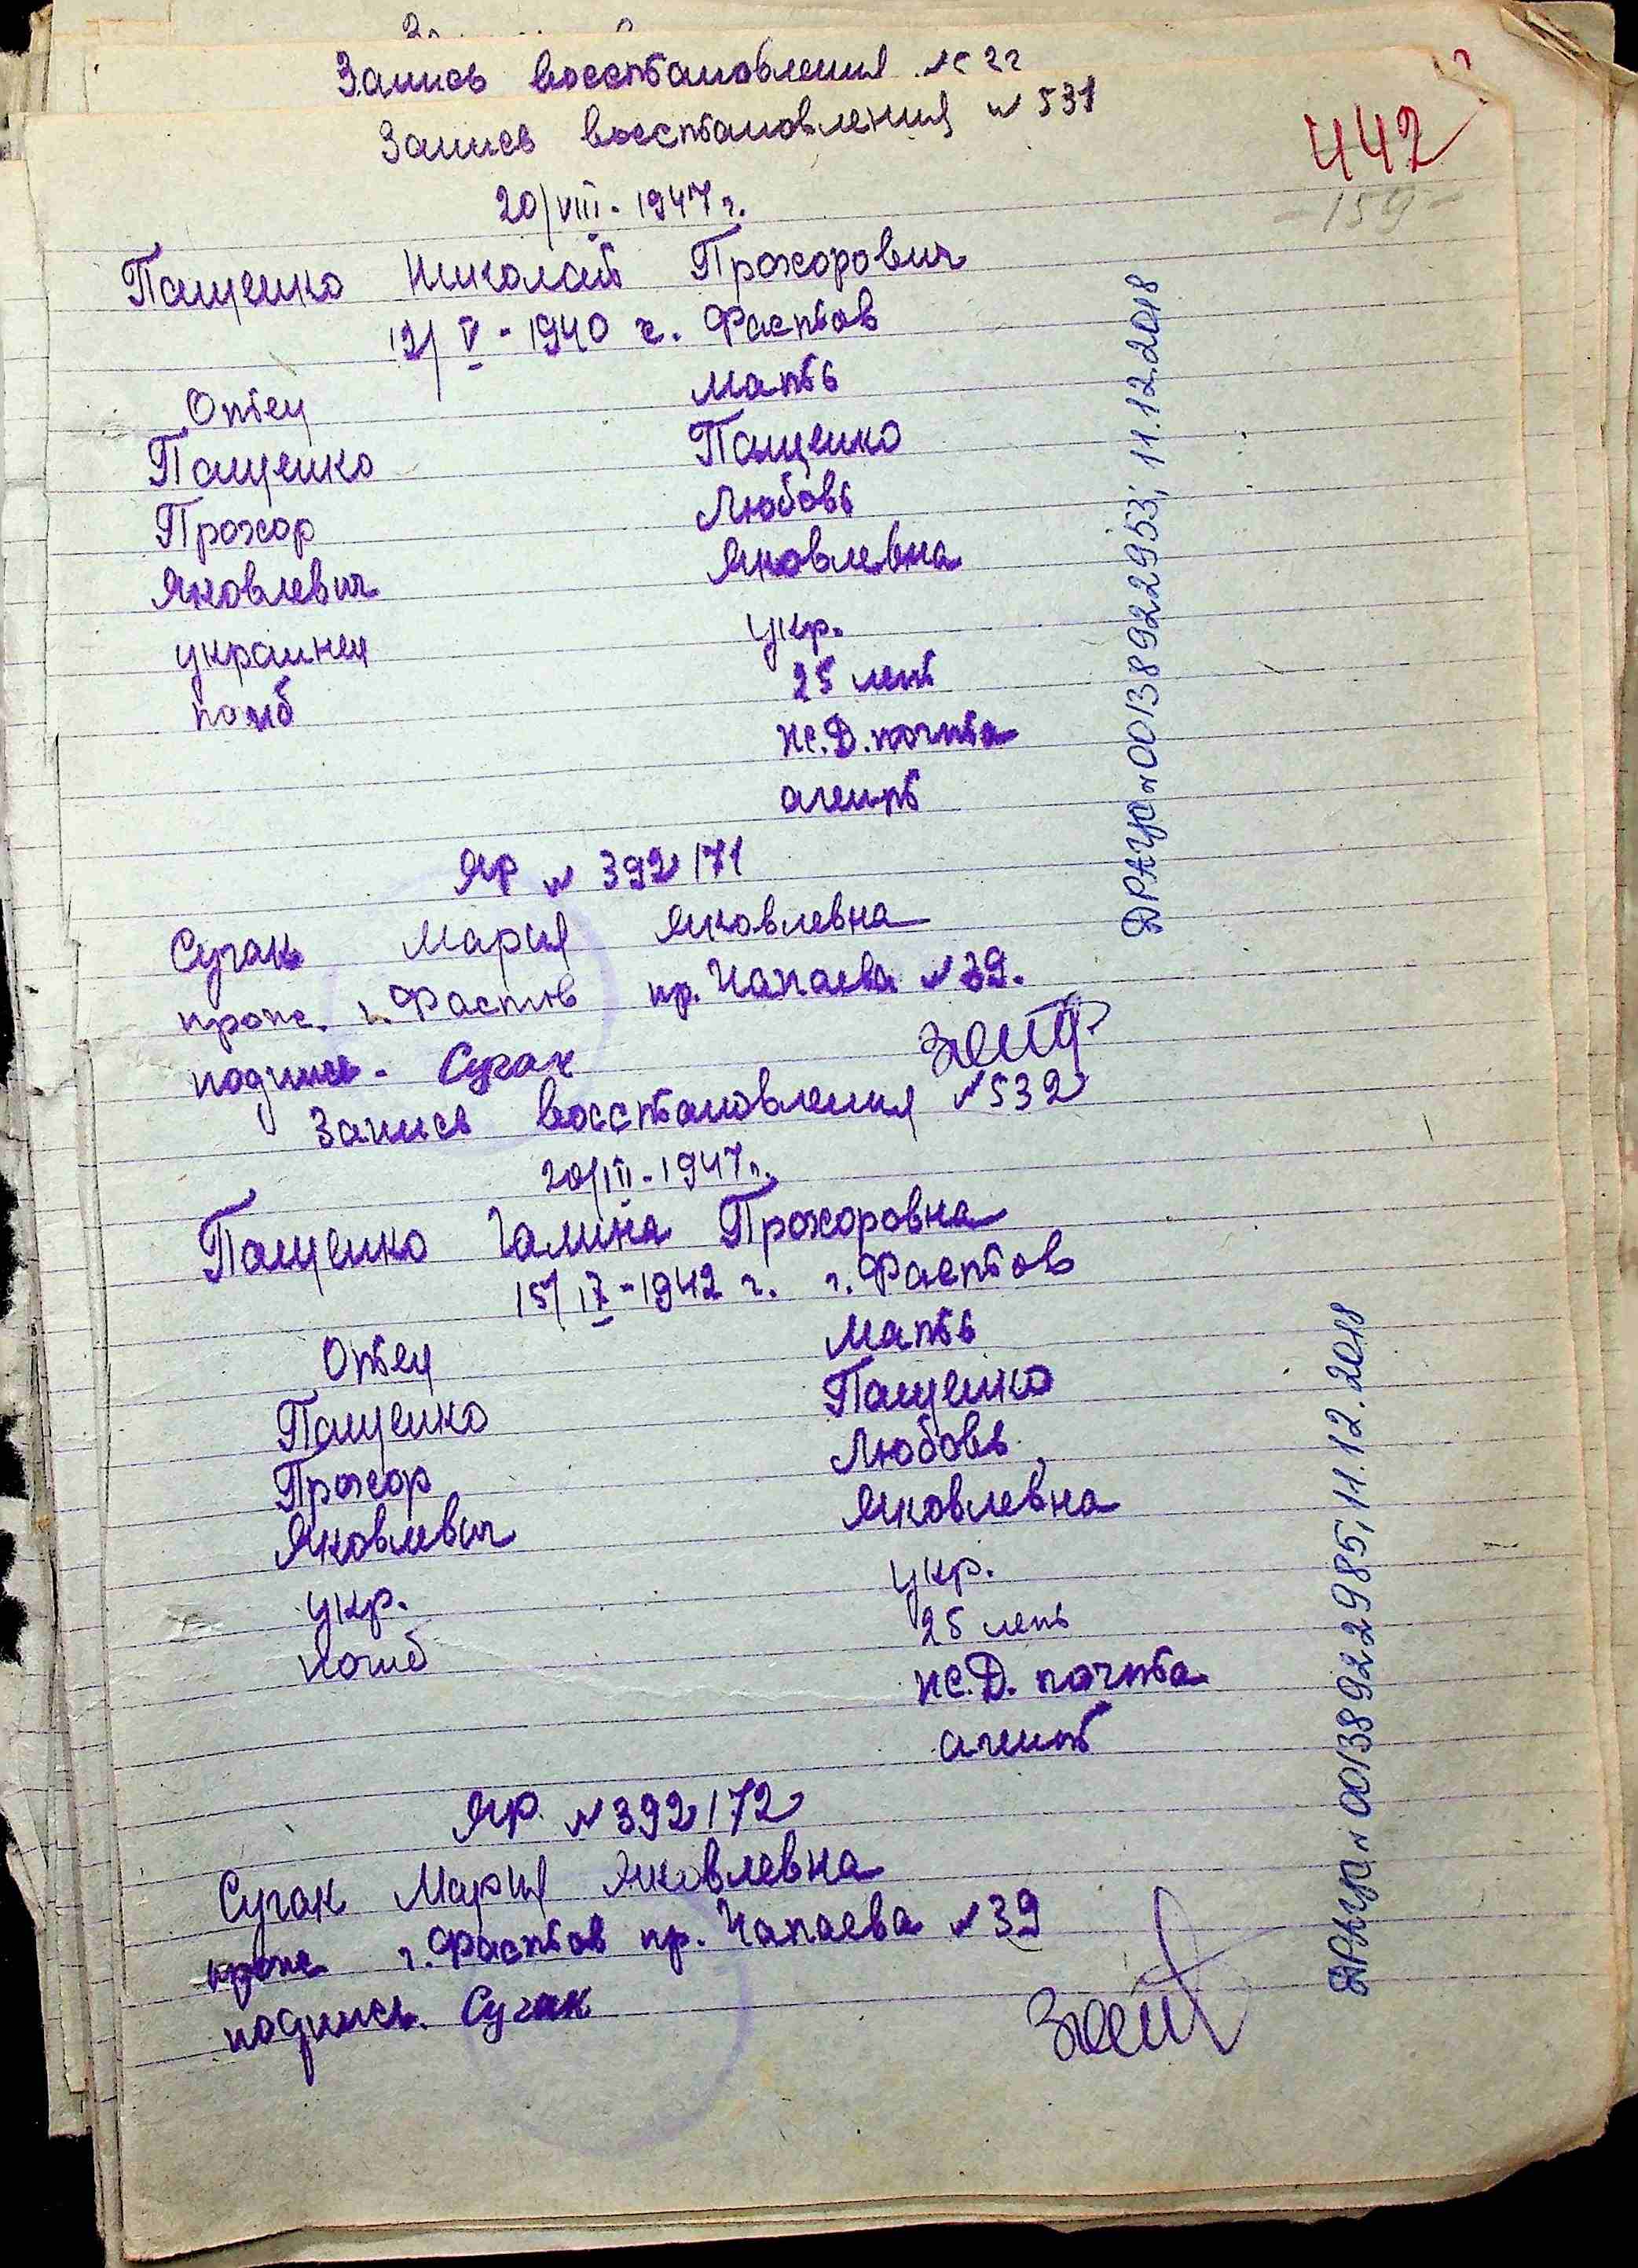 Запись восстановления №
Запись восстановления № 531
442
20/VIII - 1947 г.
- 159 -
Пащенко Николай Прохорович
12/V - 1940 г. Фастов
Отец Мать
Пащенко Пащенко
Прохор Любовь
Яковлевич Яковлевна
украинец укр.
погиб 25 лет
Ж.Д. почта
агент
ЯР № 392171
Сучак Мария Яковлевна
прож. г. Фастов пр. Чапаева № 39.
подпись - Сучак
ДРАЦС № 00138922953; 11.12.2018
Запись восстановления № 532
20/VIII - 1947 г.
Пащенко Галина Прохоровна
15/IX - 1942 г. г. Фастов
Отец Мать
Пащенко Пащенко
Прохор Любовь
Яковлевич Яковлевна
укр. укр.
погиб 25 лет
Ж.Д. почта
агент
ЯР. № 392172
Сучак Мария Яковлевна
прож г. Фастов пр. Чапаева № 39
подпись. Сучак
ДРАЦС № 00138922985; 11.12.2018